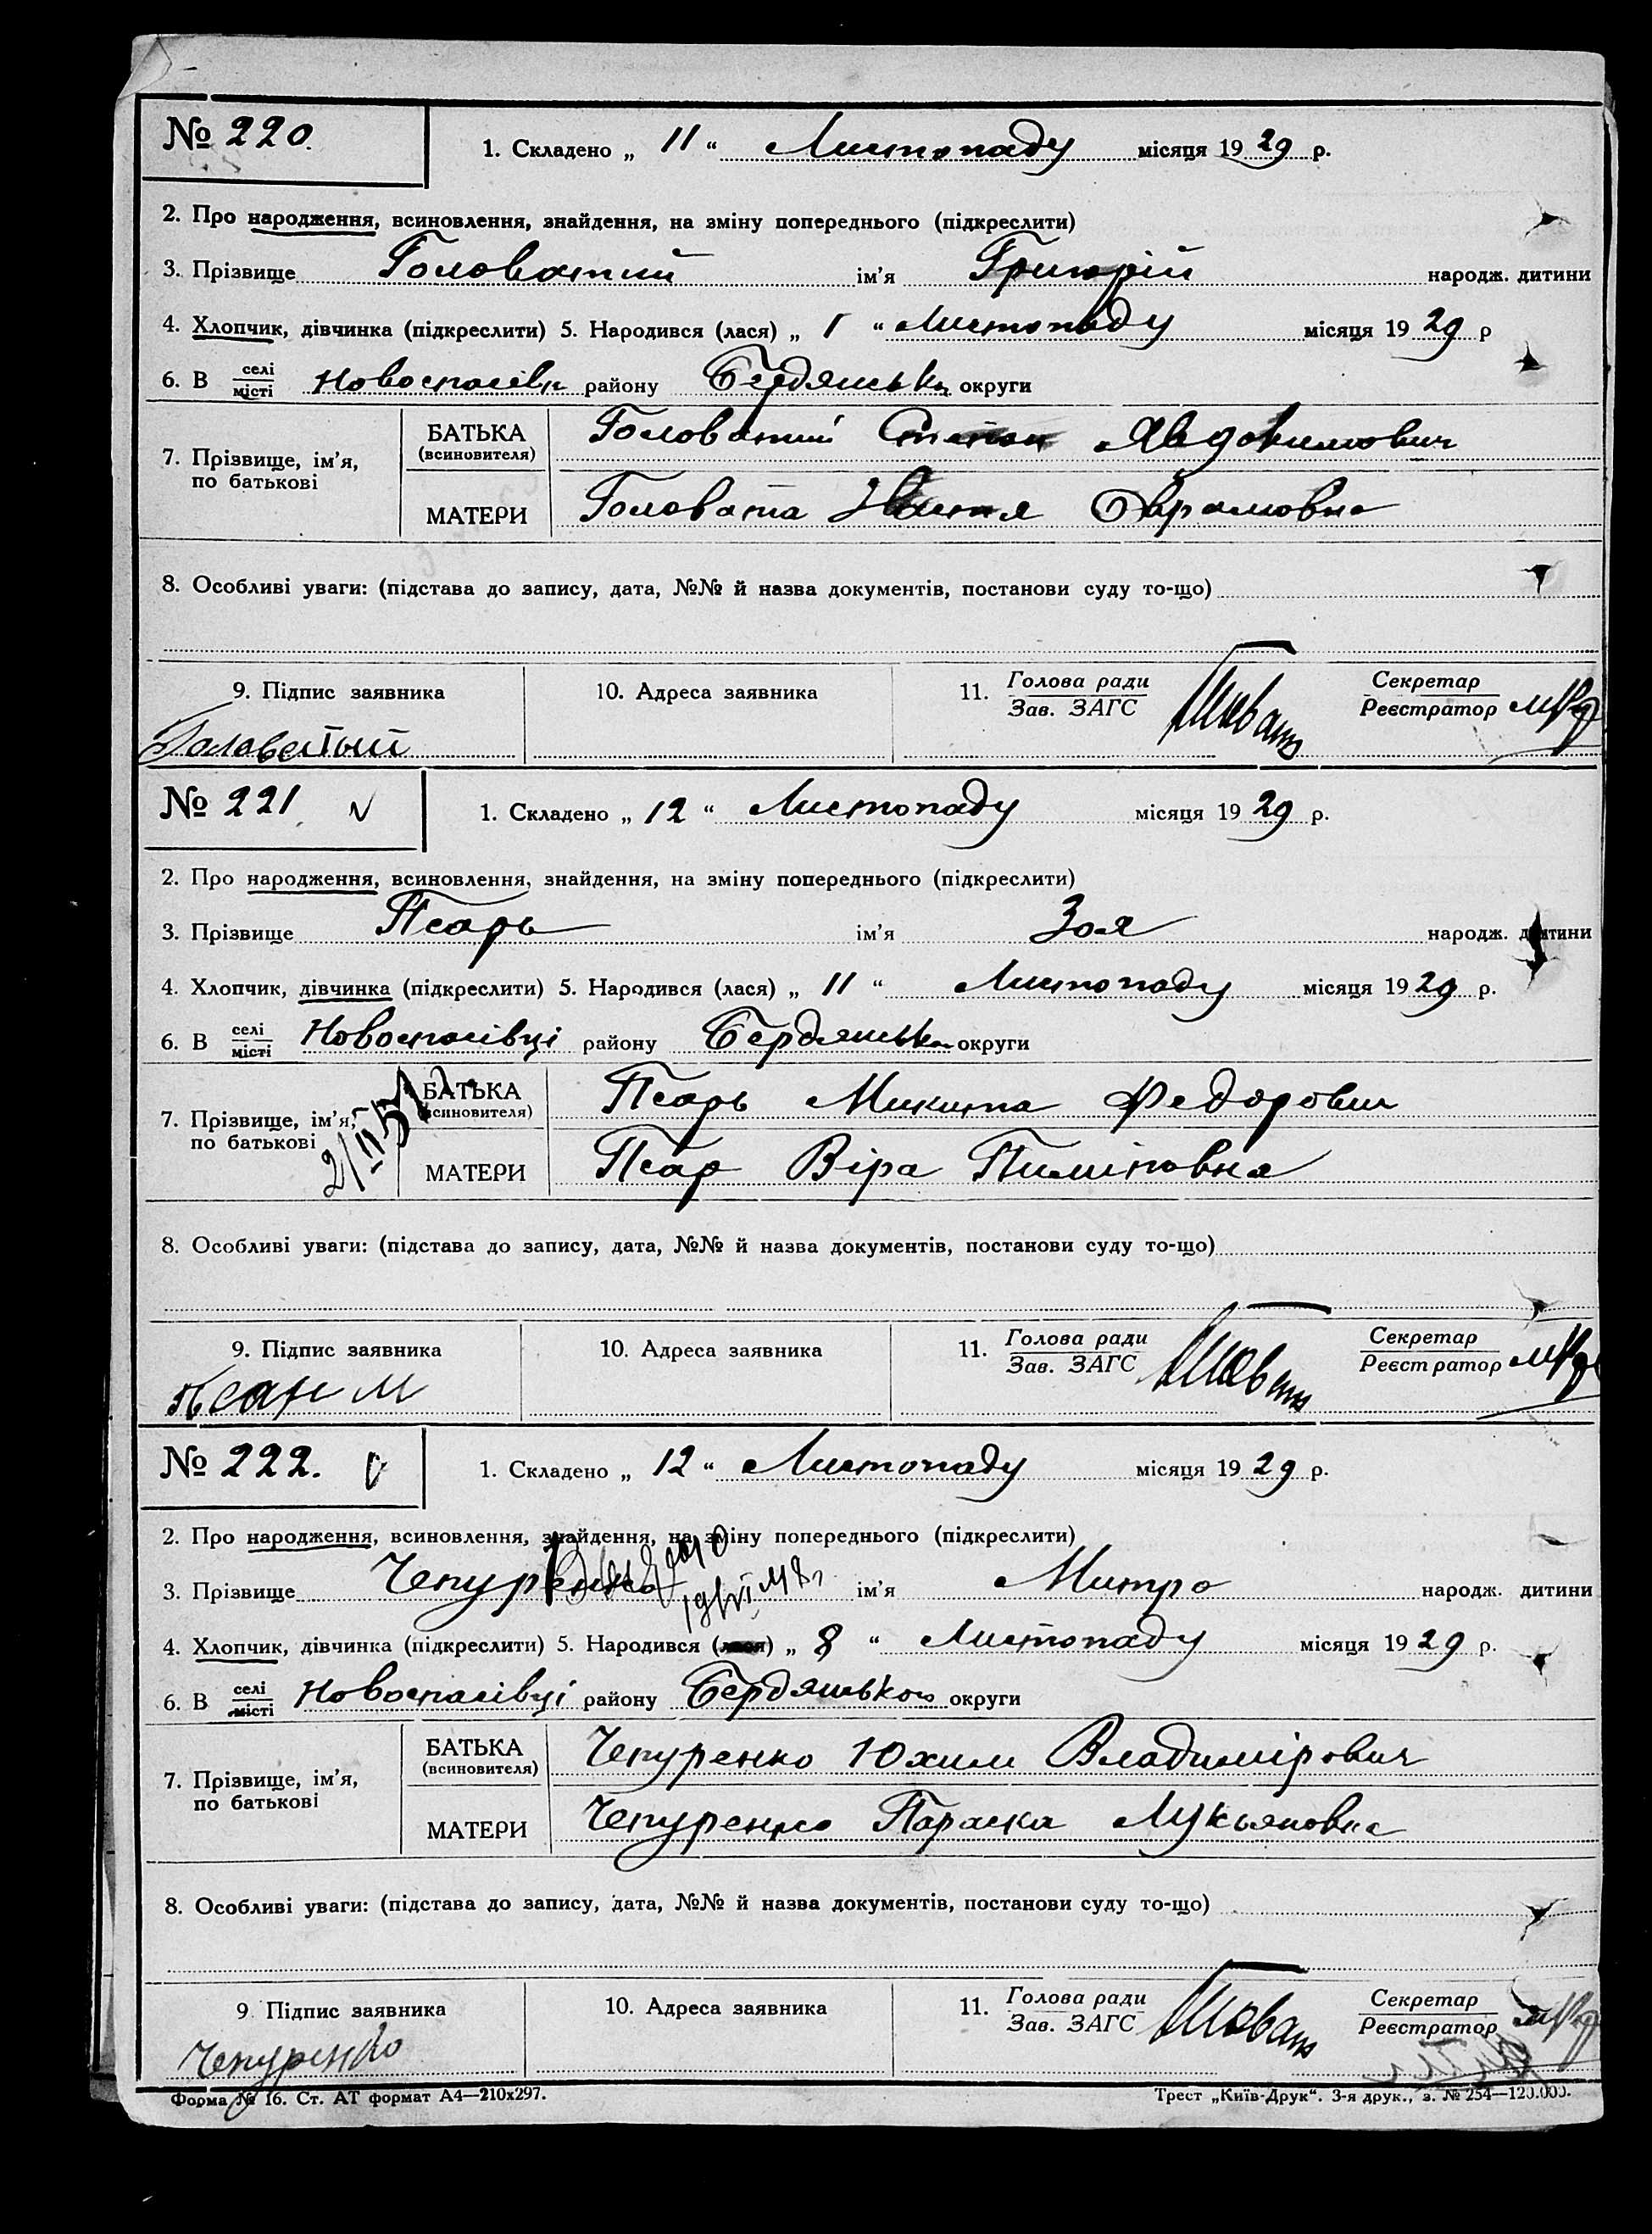 № 220. 1. Складено „ 11 “ Листопаду місяця 19 29 р.
2. Про народження, всиновлення, знайдення, на зміну попереднього (підкреслити)
3. Прізвище Головатий ім'я Григорій народж. дитини
4. Хлопчик, дівчинка (підкреслити) 5. Народився (лася) „ 1 “ Листопаду місяця 19 29 р
6. В селі/місті Новоспасівк району Бердянська округи
7. Прізвище, ім'я, по батькові
БАТЬКА (всиновителя) Головатий Степан Явдокимович
МАТЕРИ Головата Настя Оврамовна
8. Особливі уваги: (підстава до запису, дата, №№ й назва документів, постанови суду то-що)
9. Підпис заявника 10. Адреса заявника 11. Голова ради/Зав. ЗАГС Секретар/Реєстратор
Головатый
№ 221. 1. Складено „ 12 “ Листопаду місяця 19 29 р.
2. Про народження, всиновлення, знайдення, на зміну попереднього (підкреслити)
3. Прізвище Псарь ім'я Зоя народж. дитини
4. Хлопчик, дівчинка (підкреслити) 5. Народився (лася) „ 11 “ Листопаду місяця 19 29 р.
6. В селі/місті Новоспасівці району Бердянська округи
7. Прізвище, ім'я, по батькові
2/II 51
БАТЬКА (всиновителя) Псарь Микита Федорович
МАТЕРИ Псар Віра Пиліповна
8. Особливі уваги: (підстава до запису, дата, №№ й назва документів, постанови суду то-що)
9. Підпис заявника 10. Адреса заявника 11. Голова ради/Зав. ЗАГС Секретар/Реєстратор
№ 222. 1. Складено „ 12 “ Листопаду місяця 19 29 р.
2. Про народження, всиновлення, знайдення, на зміну попереднього (підкреслити)
3. Прізвище Чепуренко ім'я Митро народж. дитини
4. Хлопчик, дівчинка (підкреслити) 5. Народився (лася) „ 8 “ Листопаду місяця 19 29 р.
6. В селі/місті Новоспасівці району Бердянського округи
7. Прізвище, ім'я, по батькові
БАТЬКА (всиновителя) Чепуренко Юхим Владимірович
МАТЕРИ Чепуренко Параска Лукьяновна
8. Особливі уваги: (підстава до запису, дата, №№ й назва документів, постанови суду то-що)
9 Підпис заявника 10. Адреса заявника 11. Голова ради/Зав. ЗАГС Секретар/Реєстратор
Чепуренко
Форма № 16. Ст. АТ формат А4—210х297. Трест „Київ-Друк“. 3-я друк., з. № 254—120.000.